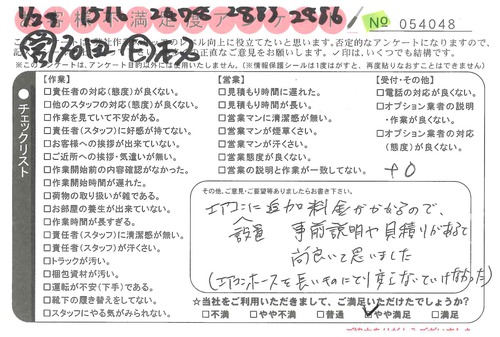 お客様満足度アンケート
1/28
No 054048
ベル向上に役立てたいと思います。否定的なアンケートになりますので、
正直なご意見をお願いします。✓印は、いくつでも結構です。
※このアンケートは、アンケート目的以外には使用いたしません。(※情報保護シールは1度はがすと、再度貼りなおすことはできません)
チェックリスト
【作業】
□責任者の対応(態度)が良くない。
□他のスタッフの対応(態度)が良くない。
□作業を見ていて不安がある。
□責任者(スタッフ)に好感が持てない。
□お客様への挨拶が出来ていない。
□ご近所への挨拶・気遣いが無い。
□作業開始前の内容確認がなかった。
□作業開始時間が遅れた。
□荷物の取り扱いが雑である。
□お部屋の養生が出来ていない。
□作業時間が長すぎる。
□責任者(スタッフ)に清潔感が無い。
□責任者(スタッフ)が汗くさい。
□トラックが汚い。
□梱包資材が汚い。
□運転が不安(下手)である。
□靴下の履き替えをしてない。
□スタッフにやる気がみられない。
【営業】
□見積もり時間に遅れた。
□見積もり時間が長い。
□営業マンに清潔感が無い。
□営業マンが煙草くさい。
□営業マンが汗くさい。
□営業態度が良くない。
□営業の説明と作業が一致してない。
【受付・その他】
□電話の対応が良くない。
□オプション業者の説明
・作業が良くない。
□オプション業者の対応
(態度)が良くない。
+0
その他、ご意見・ご要望等ありましたらお書き下さい。
エアコンに追加料金がかかるので、
設置 事前説明や見積りがあると
尚良いと思いました
(エアコンホースを長いものに
☆当社をご利用いただきまして、ご満足いただけたでしょうか?
□不満 □やや不満 □普通 ☑やや満足 □満足